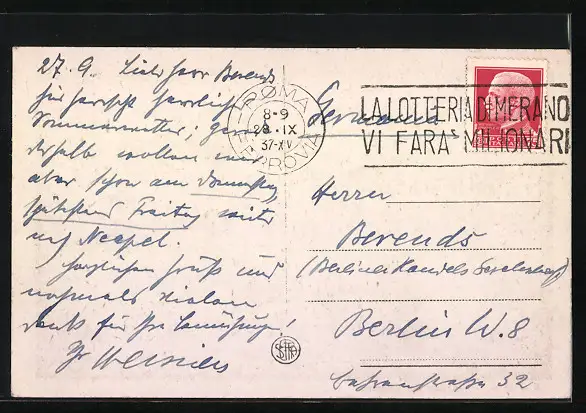 27.9. Lieber Herr Berends
hier herrscht herrliches
Sommerwetter;
deshalb wollen wir
aber schon am Donnerstag,
spätestens Freitag weiter
nach Neapel.
Herzlichen Gruß und
nochmals vielen
Dank für Ihre Bemühungen!
Ihr
ROMA
8-9
28 IX
37-XV
FERROVIA
LA LOTTERIA DI MERANO
VI FARA' MILIONARI
Germania
Herrn
Berends
(Berliner Handels Gesellschaft)
Berlin W. 8
Behrenstraße 32